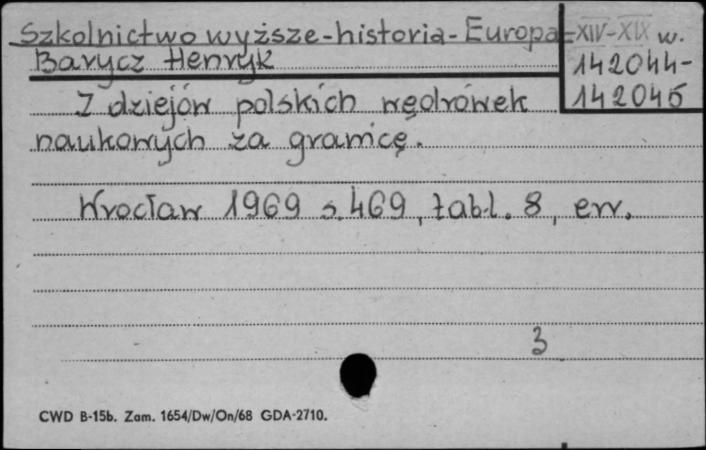 Szkolnictwo wyższe-historia-Europa-XIV-XIX w.
Barycz Henryk
142044-
142045
Z dziejów polskich wędrówek
naukowych za granicę.
Wrocław 1969 s. 469, tabl. 8, err.
3
CWD B-15b. Zam. 1654/Dw/On/68 GDA-2710.